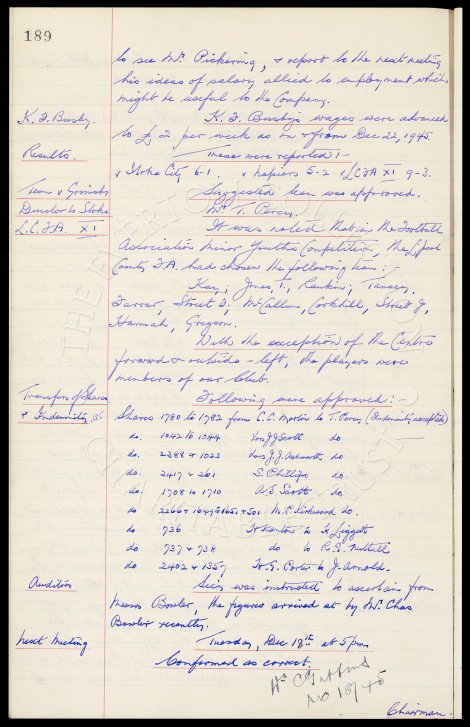 189
to see Mr. Pickering, & report to the next meeting
his ideas of salary allied to employment which
might be useful to the Company.
K. F. Busby. K. F. Busby's wages were advanced
to £2 per week as on & from Dec 22, 1945
Results. These were reported :-
v Stoke City 6-1. v Napiers 5-2 v LCFA XI 9-3.
Team v Grimsby Suggested team was approved.
Director to Stoke Mr. T. Percy.
L.C.F.A. XI It was noted that in the Football
Association Minor Youths Competition, the L'pool
County F.A. had chosen the following team :
Kay, Jones, T., Rankin, Tansey,
Farrar, Street F, McCallen, Corkhill, Street J,
Hannah, Gregson.
With the exception of the Centre
forward & outside-left, the players were
members of our Club.
Transfers of Shares Following were approved :-
& Indemnity Shares 1780 to 1782 from C.C. Morton to T. Percy (Indemnity accepted)
do. 1042 to 1044 J Scott do
do. 2288 & 1023 J.J. Ashworth do
do. 2417 & 261 S. Phillips do
do. 1708 to 1710 A.S. Scott do
do. 2266 & 1649 & 1651 & 501 M.C. Kirkwood do.
do 736 to K Liggett
do 737 & 738 do to R.G. Nuttall
do 2402 & 1357 H.G. Porter to J. Arnold.
Auditor Secy was instructed to ascertain from
Messrs Bowler, the figures arrived at by Mr. Chas
Bowler recently.
Next Meeting Tuesday, Dec 18th at 5 pm
Confirmed as correct.
18/45
Chairman.